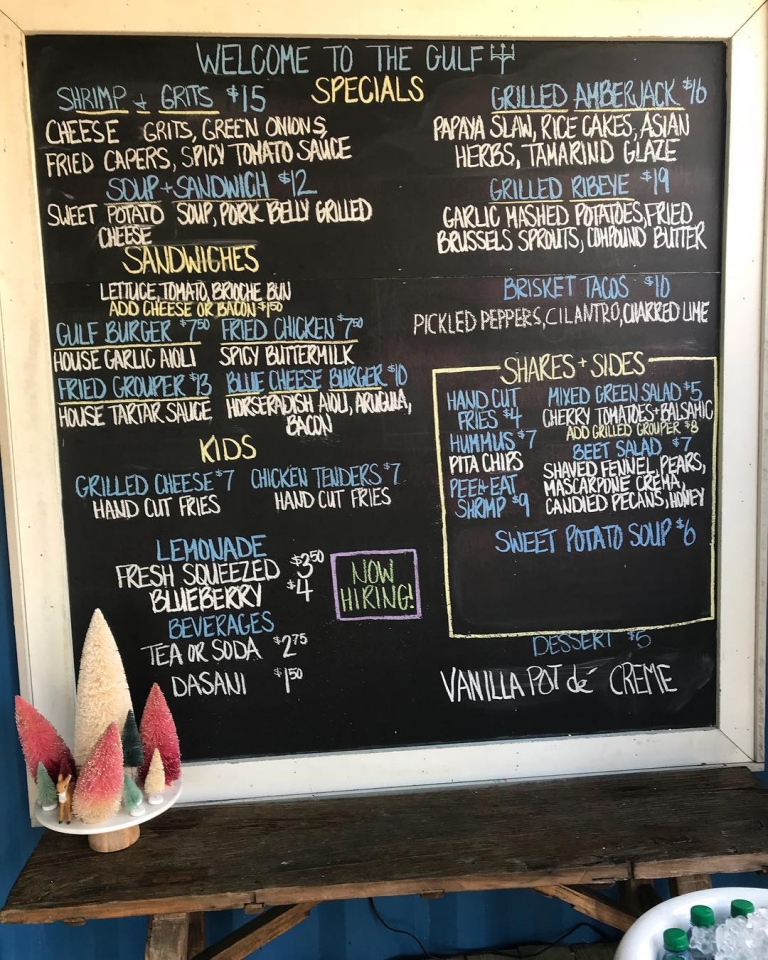 WELCOME TO THE GULF
SPECIALS
SHRIMP + GRITS $15
CHEESE GRITS, GREEN ONIONS,
FRIED CAPERS, SPICY TOMATO SAUCE
SOUP + SANDWICH $12
SWEET POTATO SOUP, PORK BELLY GRILLED
CHEESE
GRILLED AMBERJACK $16
PAPAYA SLAW, RICE CAKES, ASIAN
HERBS, TAMARIND GLAZE
GRILLED RIBEYE $19
GARLIC MASHED POTATOES, FRIED
BRUSSELS SPROUTS, COMPOUND BUTTER
BRISKET TACOS $10
PICKLED PEPPERS, CILANTRO, CHARRED LIME
SANDWICHES
LETTUCE, TOMATO, BRIOCHE BUN
ADD CHEESE OR BACON $1.50
GULF BURGER $7.50
HOUSE GARLIC AIOLI
FRIED CHICKEN $7.50
SPICY BUTTERMILK
FRIED GROUPER $13
HOUSE TARTAR SAUCE
BLUE CHEESE BURGER $10
HORSERADISH AIOLI, ARUGULA,
BACON
KIDS
GRILLED CHEESE $7
HAND CUT FRIES
CHICKEN TENDERS $7
HAND CUT FRIES
LEMONADE
FRESH SQUEEZED $3.50
BLUEBERRY $4
BEVERAGES
TEA OR SODA $2.75
DASANI $1.50
NOW
HIRING!
SHARES + SIDES
HAND CUT
FRIES $4
HUMMUS $7
PITA CHIPS
PEEL+EAT
SHRIMP $9
MIXED GREEN SALAD $5
CHERRY TOMATOES + BALSAMIC
ADD GRILLED GROUPER $8
BEET SALAD $7
SHAVED FENNEL, PEARS,
MASCARPONE CREMA,
CANDIED PECANS, HONEY
SWEET POTATO SOUP $6
DESSERT $5
VANILLA POT dé CREME